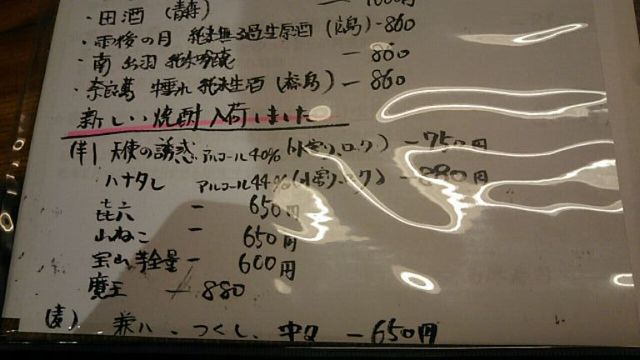 ・田酒（青森） 1000円
・雨後の月 純米無ろ過生原酒（広島）-860
・南 出羽 純米吟醸 - 860
・奈良萬 中垂れ 純米生酒（福島）- 860
新しい焼酎入荷しました
（芋）天使の誘惑 アルコール40%（水割り、ロック）- 750円
ハナタレ アルコール44%（水割り、ロック）- 880円
㐂六 - 650円
山ねこ - 650円
宝山芋全量 - 600円
魔王 - 880
（麦）兼八、つくし、中々 - 650円